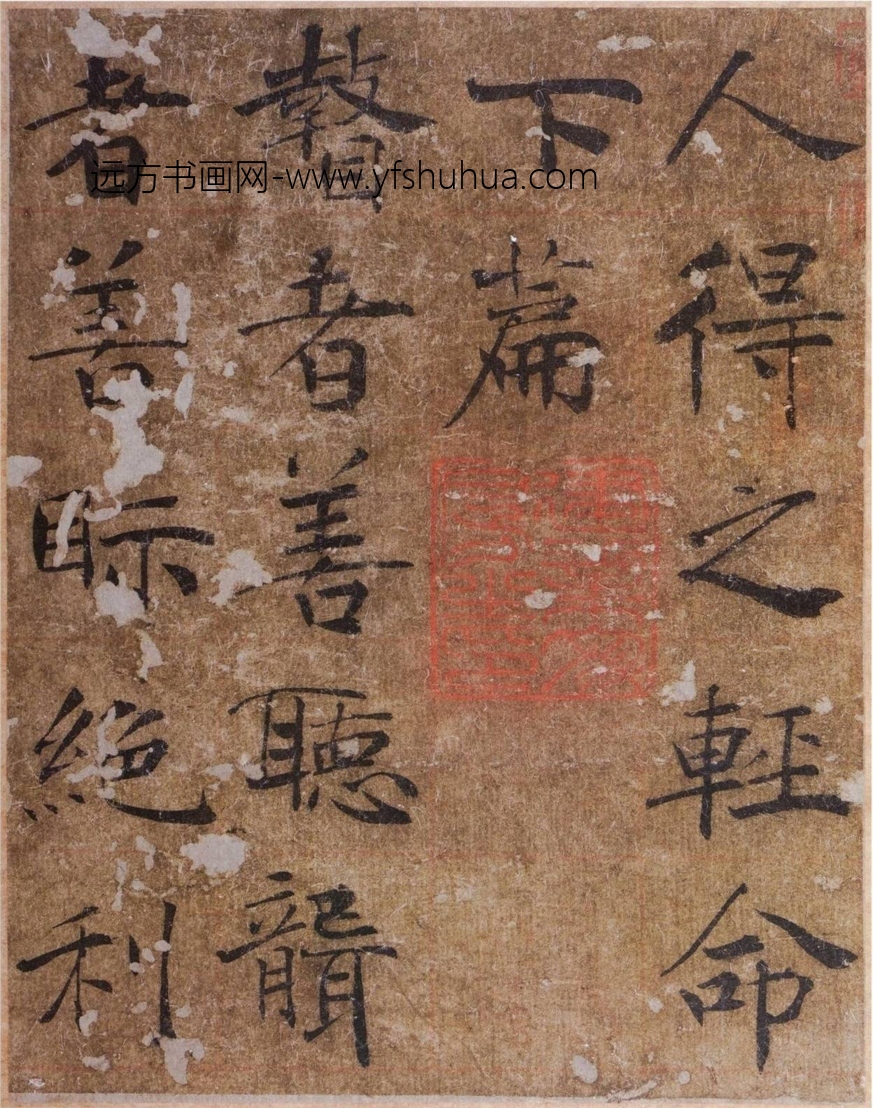 人得之輕命
下篇
瞽者善聽聾
者善眎絶利
远方书画网-www.yfshuhua.com